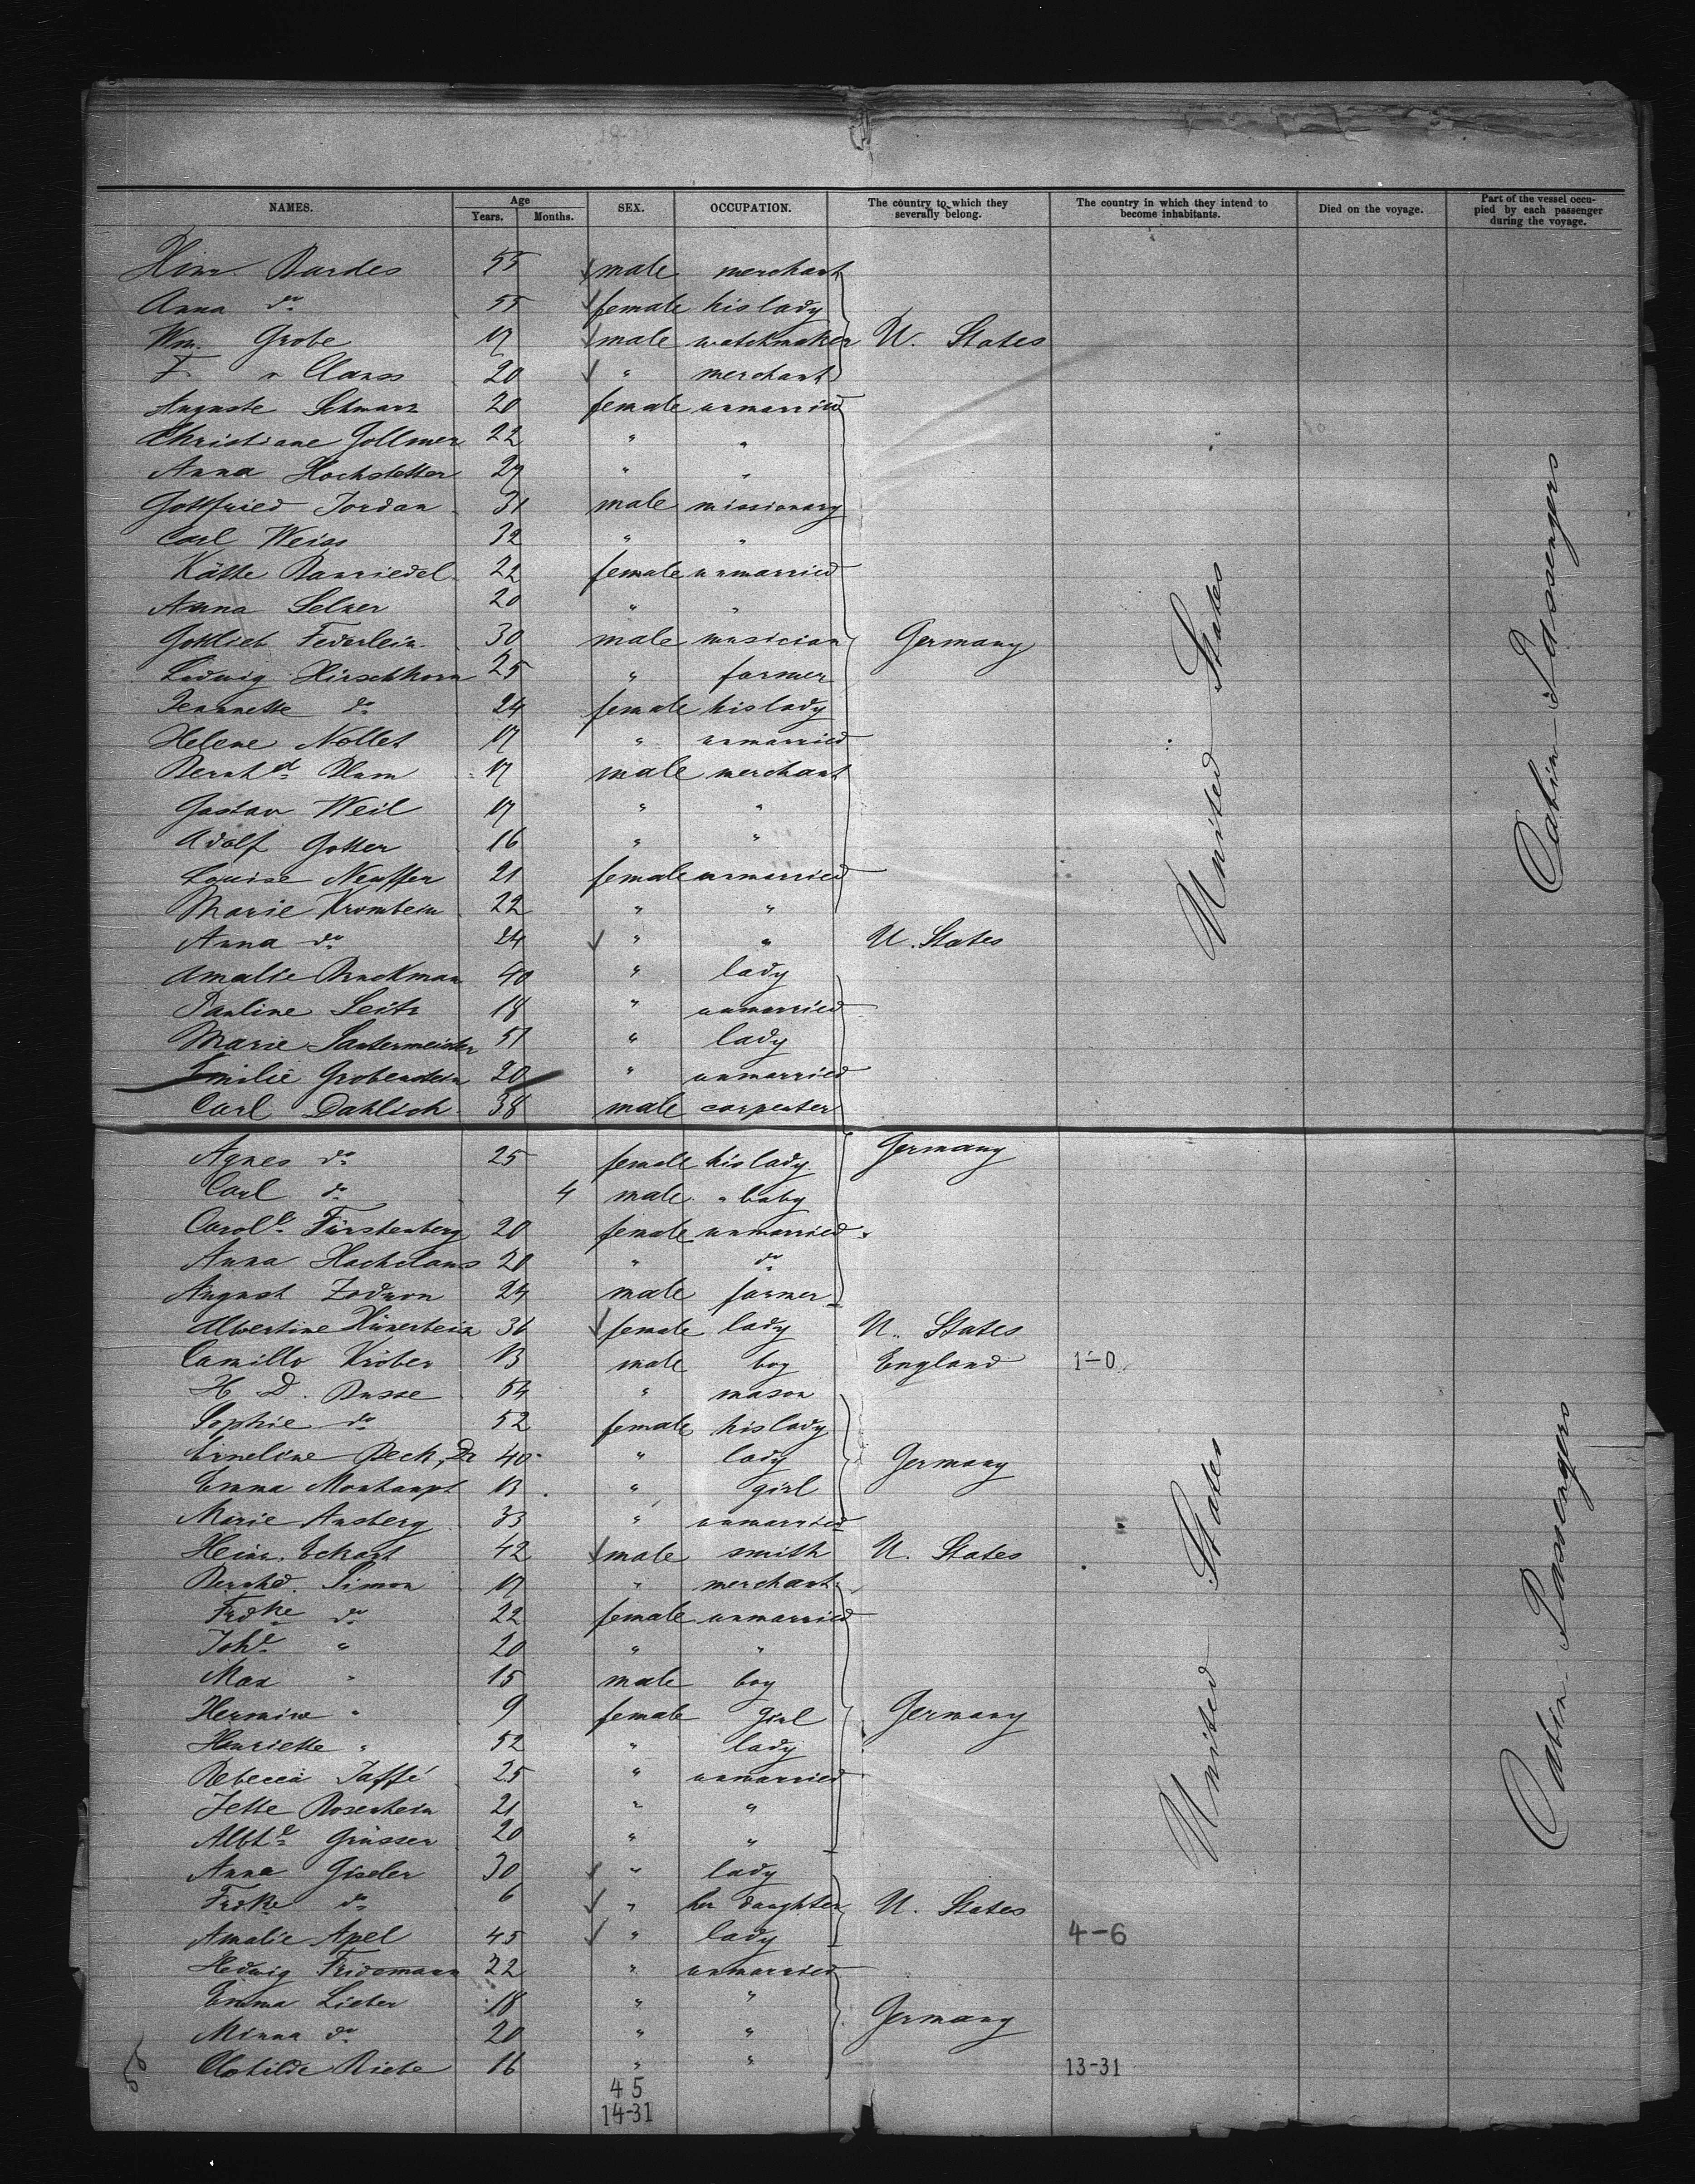 NAMES. Age Years. Months. SEX. OCCUPATION. The country to which they severally belong. The country in which they intend to become inhabitants. Died on the voyage. Part of the vessel occupied by each passenger during the voyage.
Hinr. Bardes 55 male merchant
Anna do 55 female his lady
Wm. Grobe 17 male watchmaker U. States
F. v Clauss 20 " merchant
Auguste Schwarz 20 female unmarried
Christiane Gollmer 22 " "
Anna Hochstetter 27 " "
Gottfried Jordan 31 male missionary
Carl Weiss 32 " "
Käthe Banriedel 22 female unmarried
Anna Selzer 20 " "
Gottlieb Federlein 30 male musician Germany
Ludwig Hirschhorn 25 " farmer
Jeannette do 24 female his lady
Helene Nollet 17 " unmarried
Bernhd Blum 17 male merchant
Gustav Weil 17 " "
Adolf Gotter 16 " "
Louise Neuffer 21 female unmarried
Marie Krombein 22 " "
Anna do 24 " " U. States
Amalie Bruckman 40 " lady
Pauline Seitz 18 " unmarried
Marie Sautermeister 51 " lady
Emilie Grobenstein 20 " unmarried
Carl Dahlich 38 male carpenter
United States
Cabin Passengers
Agnes do 25 female his lady Germany
Carl do 4 male " baby
Carole Fürstenberg 20 female unmarried
Anna Hachclaus 20 " do
August Zoduon 24 male farmer
Albertine Hünerbein 36 female lady U. States
Camillo Kröber 13 male boy England 1-0
H. D. Busse 54 " mason
Sophie do 52 female his lady
Erneline Beck, 40 " lady Germany
Emma Monhaupt 13 " girl
Marie Ansberg 33 " unmarried
Heinr. Eckart 42 male smith U. States
Bernhd. Simon 17 " merchant
Frdke do 22 female unmarried
Johe " 20 " "
Max " 15 male boy
Hermine " 9 female girl Germany
Henriette " 52 " lady
Rebecca Jaffé 25 " unmarried
Jette Rosenhein 21 " "
Albte Grüsser 20 " "
Anna Giseler 30 " lady
Frdke do 6 " her daughter U. States
Amalie Apel 45 " lady 4-6
Hedwig Fridemann 22 " unmarried
Emma Lieber 18 " "
Minna do 20 " " Germany
Clotilde Riebe 16 " " 13-31
United States
Cabin Passengers
56
45
14-31